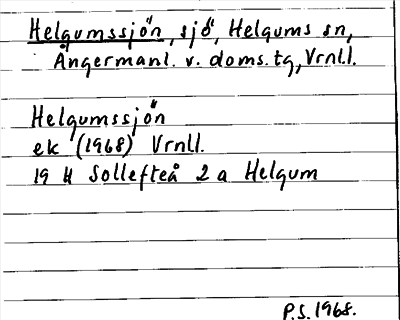 Helgumssjön, sjö, Helgums sn,
Ångermanl. v. doms. tg, Vrnll.
Helgumssjön
ek (1968) Vrnll.
19 H Sollefteå 2 a Helgum
P.S. 1968.